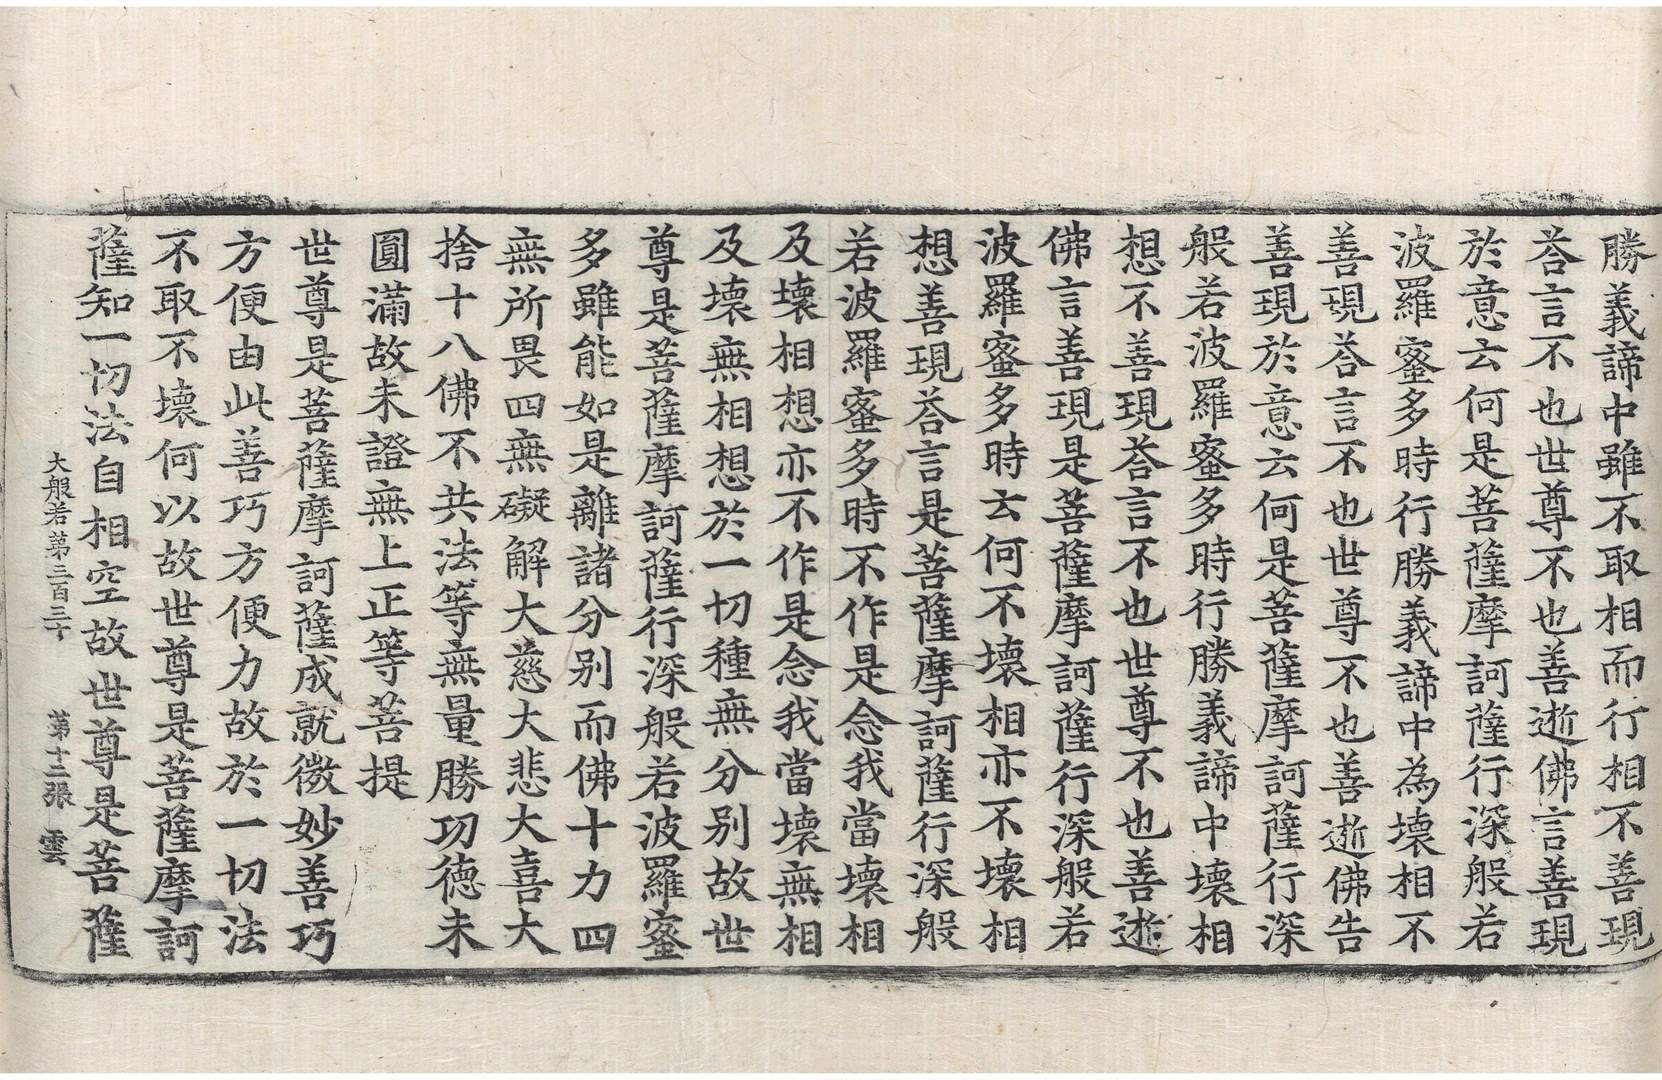 勝義諦中雖不取相而行相不善現
荅言不也世尊不也善逝佛言善現
於意云何是菩薩摩訶薩行深般若
波羅蜜多時行勝義諦中為壞相不
善現荅言不也世尊不也善逝佛告
善現於意云何是菩薩摩訶薩行深
般若波羅蜜多時行勝義諦中壞相
想不善現荅言不也世尊不也善逝
佛言善現是菩薩摩訶薩行深般若
波羅蜜多時云何不壞相亦不壞相
想善現荅言是菩薩摩訶薩行深般
若波羅蜜多時不作是念我當壞相
及壞相想亦不作是念我當壞無相
及壞無相想於一切種無分別故世
尊是菩薩摩訶薩行深般若波羅蜜
多雖能如是離諸分別而佛十力四
無所畏四無礙解大慈大悲大喜大
捨十八佛不共法等無量勝功德未
圓滿故未證無上正等菩提
世尊是菩薩摩訶薩成就微妙善巧
方便由此善巧方便力故於一切法
不取不壞何以故世尊是菩薩摩訶
薩知一切法自相空故世尊是菩薩
大般若第三百三十 第十二張 雲